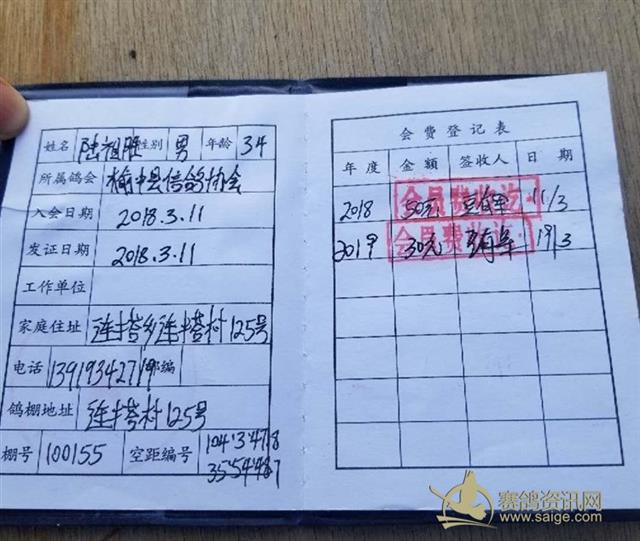 姓名 陆祖胜 性别 男 年龄 34
所属鸽会 榆中县信鸽协会
入会日期 2018.3.11
发证日期 2018.3.11
工作单位
家庭住址 连搭乡连搭村125号
电话 邮编
鸽棚地址 连搭村125号
棚号 100155 空距编号 104°3'47.8
35°54'48.7
会费登记表
年度 金额 签收人 日期
2018 50元 11/3
会员费收讫
2019 30元 19/3
会员费收讫
赛鸽资讯网
www.saige.com